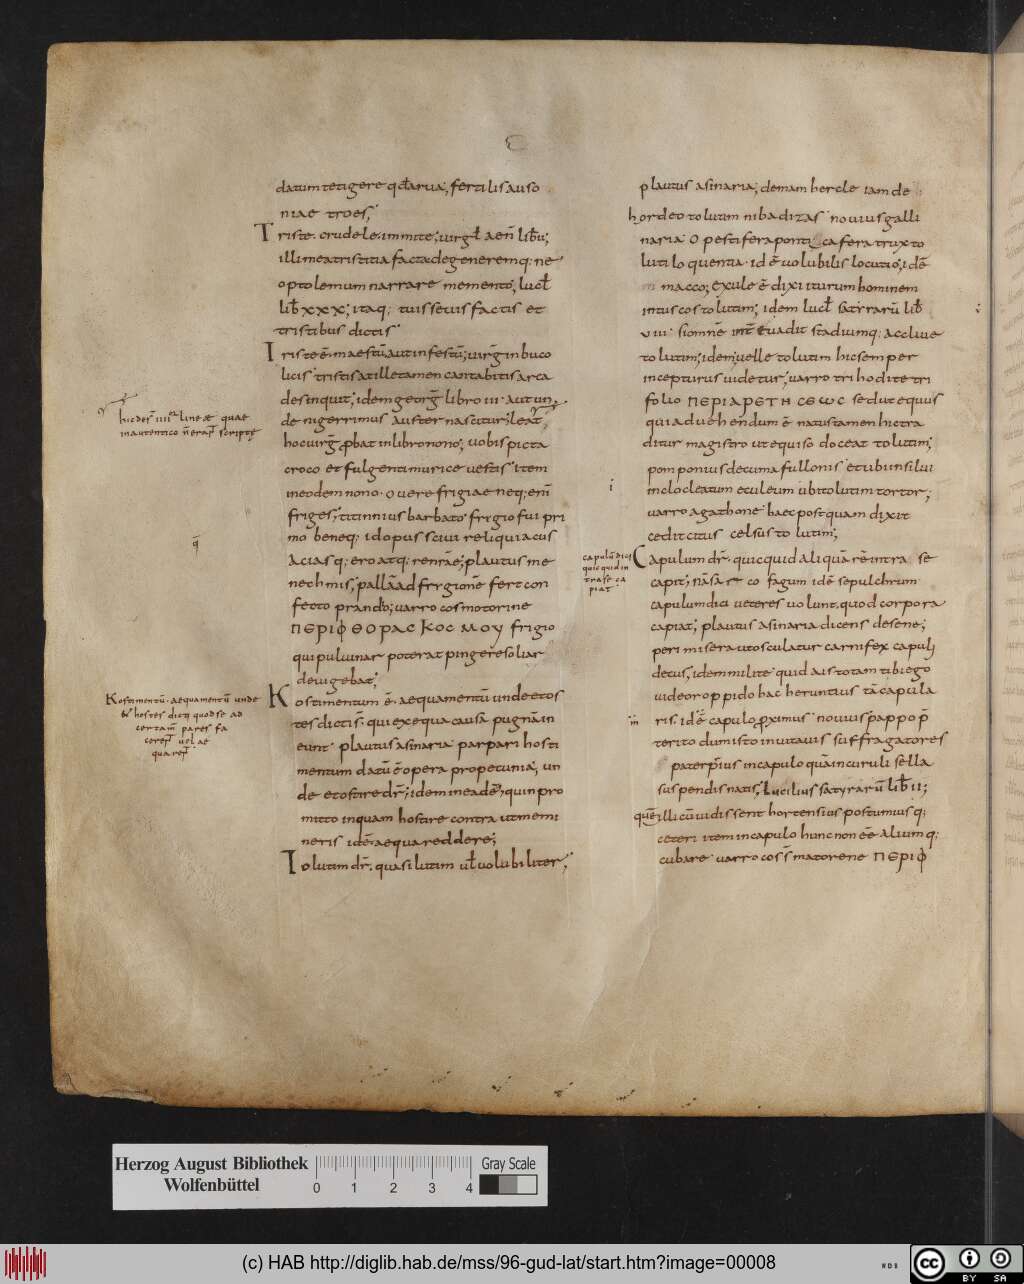 datum tetigere qđ arua; fertilis auso
niae troes;
Triste. crudele. immite; uirgł aeñ liƀ ii;
illi mea tristitia facta degeneremq; ne
optolemum narrare memento; lucł
liƀ xxx; itaq; tuis seuis factis et
tristibus dictis
Triste ē. maestū aut infestū; uirḡ in buco
licis tristis at ille tamen cantabitis arca
des inquit; idem georḡ libro iii aut un
de nigerrimus auster nascitur;
hoc uirḡ ꝓbat in libro nono; uobis picta
croco et fulgenti murice uestis item
in eodem nono. o uere frigiae neq; enī
friges; titinnius barbato frigio fui pri
mo beneq; id opus sciui reliqui acus
aciasq; ero atq;
nechmis; pallā ad frigionē fert con
fecto prandio; uarro cosmotorine
ΠΕΡΙΦΘΟΡΑC ΚΟCΜΟΥ frigio
qui puluinar poterat pingere soliar
deuigebat;
Kostimentum ē. aequamentū unde et os
tes dictī s̄. qui ex equa causā pugnā in
eunt plautus asinaria par pari hosti
mentum datū ē opera pro petunia; un
de et ostire dr̄; idem in eadē; quin pro
mitto inquam hostire contra ut memi
neris idē aequa reddere;
Tolutim dr̄. quasi uolutim uł uolubiliter;
hic des̄ iiiior lineae quae
in autentico n̄ erant scripte
q̄
Kostimentū. aequamentū unde
et hostes dicti quod se ad
certam̄ pares fa
cerent uel ae
quarent
plautus asinaria; demam hercle iam de
hordeo tolutim ni badizas nouius galli
naria O pestifera pontica fera trux to
lutiloquentia. id ē uolubilis locutio; idē
macco; exule ē dixi iturum hominem
intus cos tolutim; idem lucł satyrarū liƀ
uiii si omnē iter euadit stadiumq; accliue
tolutim; idem uelle tolutim hic semper
incepturus uidetur; uarro trihodite tri
folio ΠΕΡΙΑΡΕΤΗ CΕѠC sed ut equus
qui ad uehendum ē natus tamen hic tra
ditur magistro ut equiso doceat tolutim;
pomponius decuma fullonis et ubi insilui
in cocleatum eculeum ubi tolutim tortor;
uarro agathone haec postquam dixit
cedit citus celsus tolutim;
Capulum dr̄. quicquid aliquā rē intra se
capit; nā sarco fagum idē sepulchrum
capulum dici ueteres uolunt. quod corpora
capiat; plautus asinaria dicens de sene;
peri misera ut osculatur carnifex capuli
decus; idem milite quid ais totam tibi ego
uideor oppido hac heruntius tā capula
ris. idē capulo ꝓximus nouius pappo p̄
terito dum isto inuitauis suffragatores
pater prius in capulo quā in curuli sella
suspendis natis; Lucilius satyrarū liƀ ii;
quē illi cū uidissent hortensius postumiusq;
ceteri item in capulo hunc non ēē aliumq;
cubare uarro coss̄matorene ΠΕΡΙΦ
capulū dici
quicquid in
tra se ca
piat